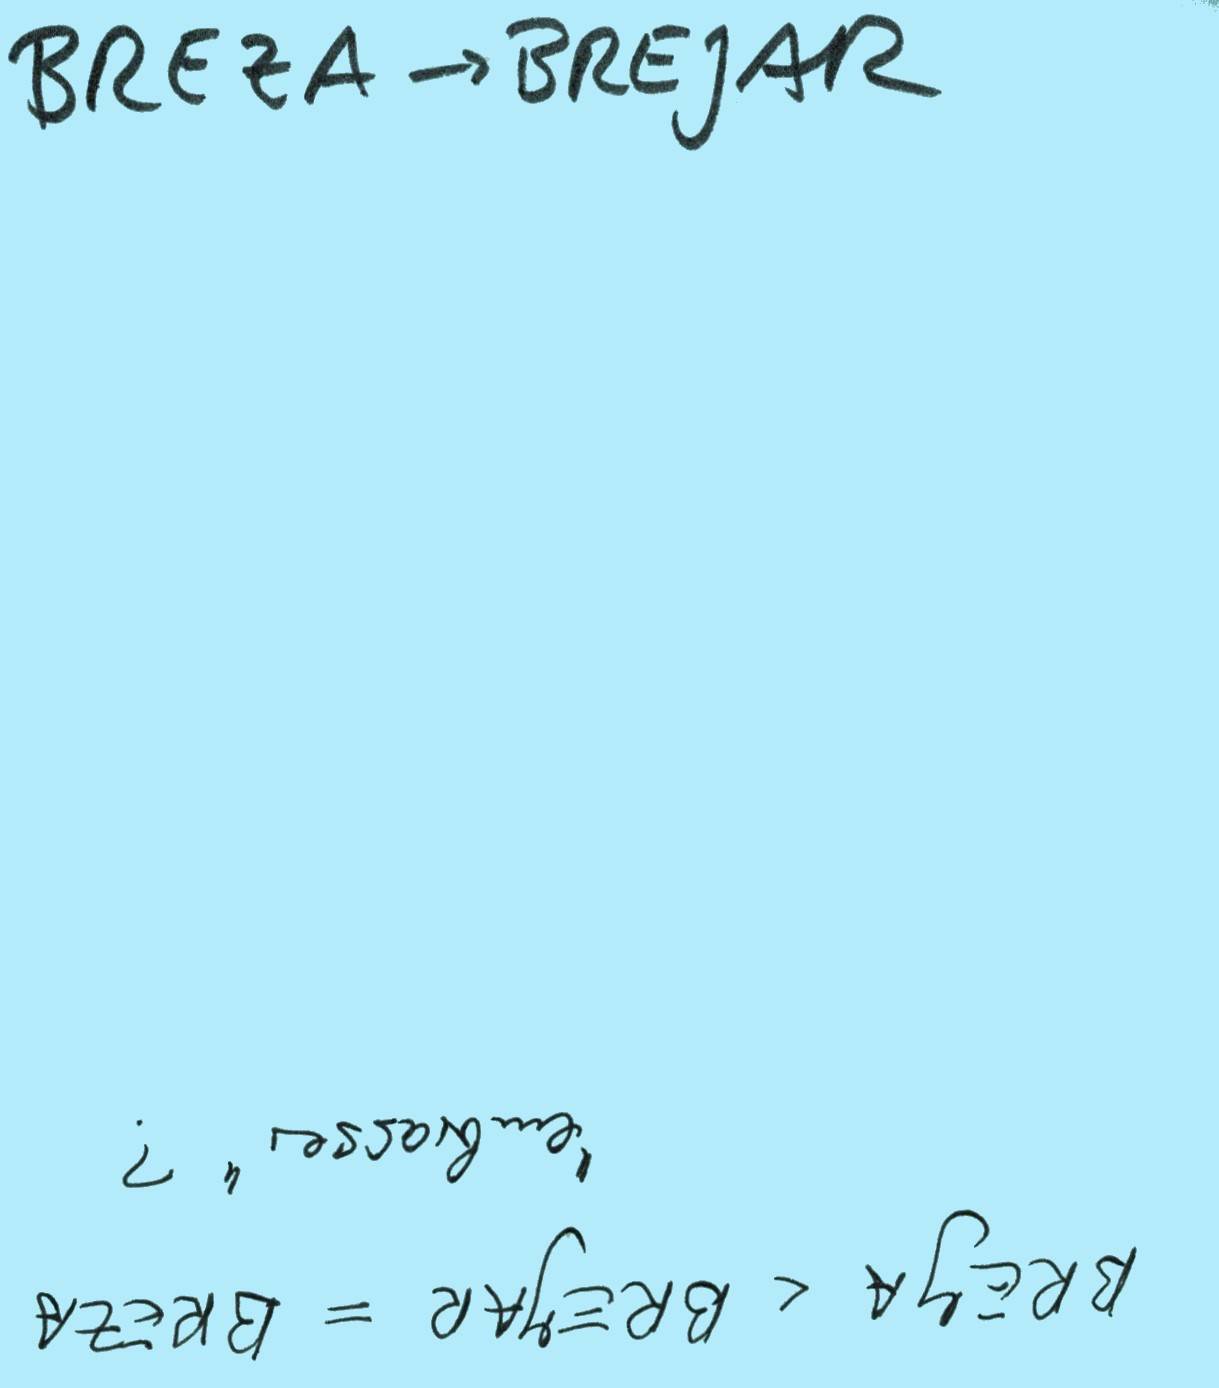 BREZA → BREJAR
BREYA > BREYAR = BREZA
"embrasser" ?